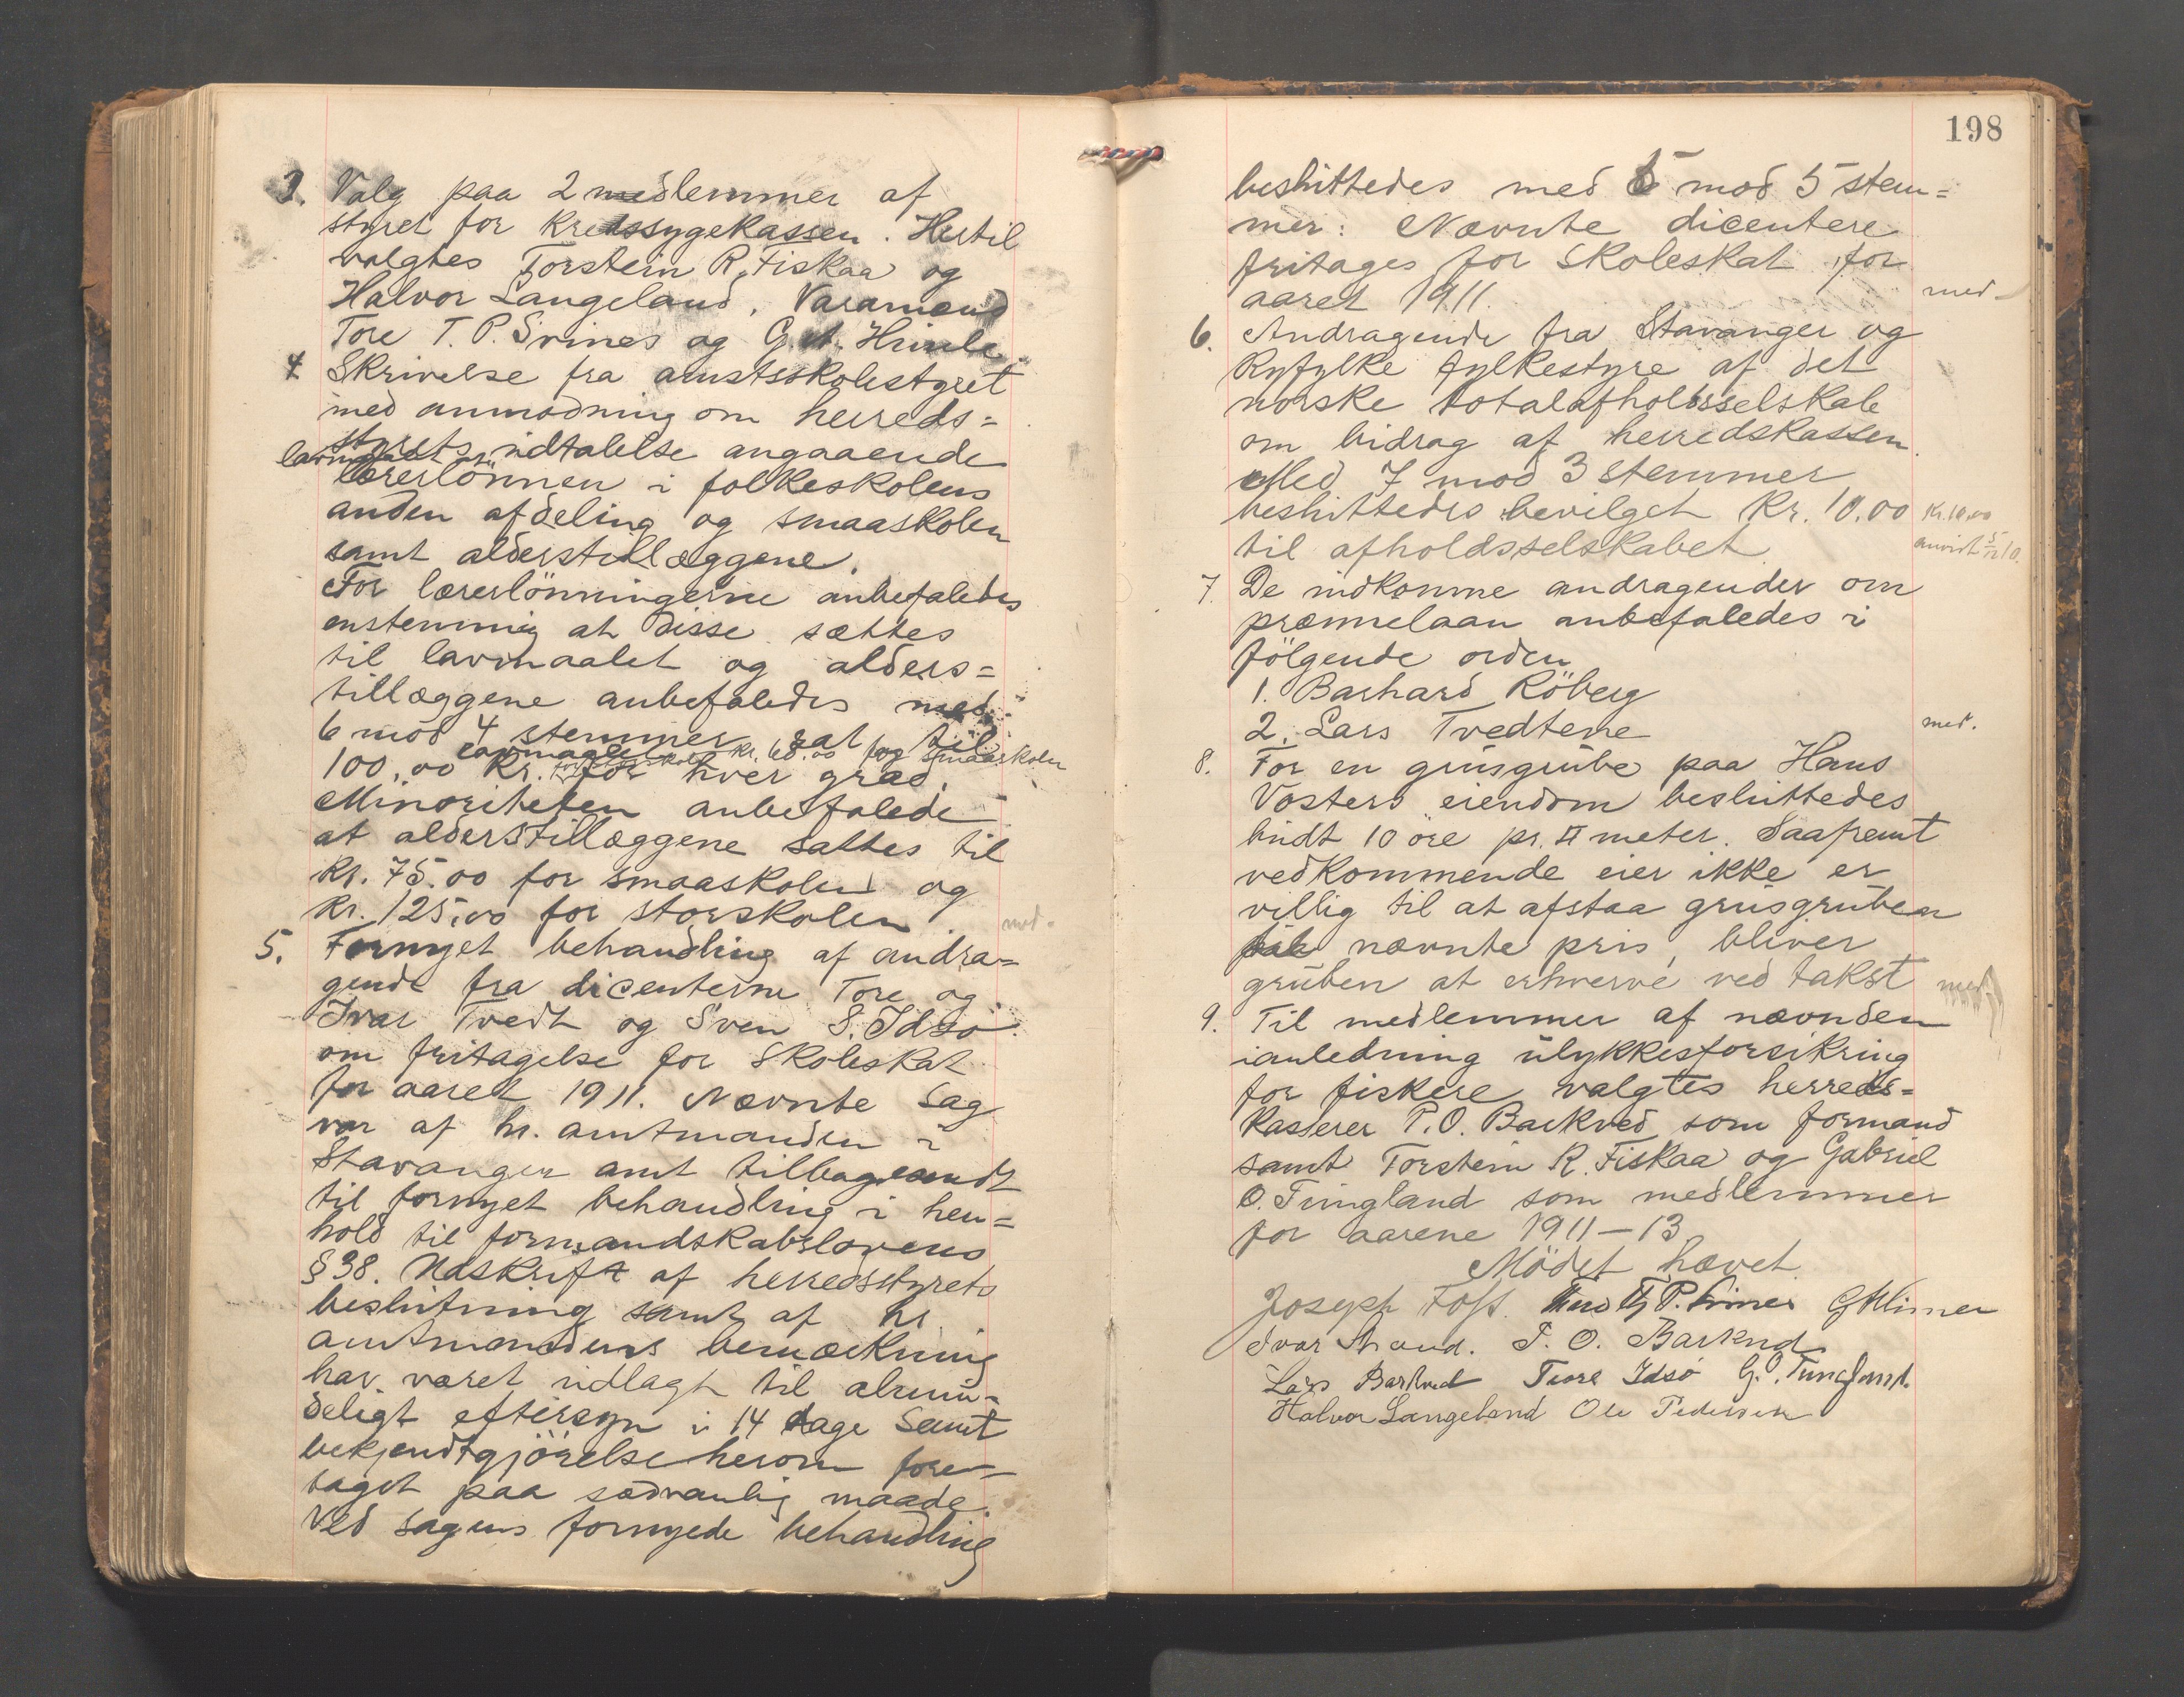 3. Valg paa 2 medlemmer af
styret for kredssygekassen. Hertil
valgtes Torstein R. Fiskaa og
Halvor Langeland, Varamænd
Tore T. P. Svines og G. A.
4. Skrivelse fra amtsskolestyret
med anmodning om herreds=
styrets udtalelse angaaende
lærerlönnen i folkeskolens
anden afdeling og smaaskolen
samt alderstillæggene.
For lærerlönningerne anbefaledes
enstemmig at disse sættes
til lavmaalet og alders=
tillæggene anbefaledes med
6 mod 4 stemmer sat til
kr. 60.00 for smaaskolen
100,00 kr. for hver grad.
Minoriteten anbefalede
at alderstillæggene sattes til
kr. 75.00 for smaaskolen og
kr. 125,00 for storskolen
5. Fornyet behandling af andra=
gende fra dicenterne Tore og
Ivar Tvedt og Sven S. Idsö
om fritagelse for skoleskat
for aaret 1911. Nævnte sag
var af hr. amtmanden i
Stavanger amt tilbagesendt
til fornyet behandling i hen=
hold til formandskabslovens
§ 38. Udskrift af herredsstyrets
beslutning samt af hr.
amtmandens bemærkning
har været udlagt til almin=
deligt eftersyn i 14 dage samt
bekjendtgjörelse herom fore=
taget paa sædvanlig maade.
Ved sagens fornyede behandling
198
besluttedes med 5 mod 5 stem=
mer: Nævnte dicentere
fritages for skoleskat for
aaret 1911.
med.
6. Andragende fra Stavanger og
Ryfylke fylkestyre af det
norske totalafholdsselskab
om bidrag af herredskassen.
Med 7 mod 3 stemmer
besluttedes bevilget Kr. 10.00
Kr. 10,00
til afholdsselskabet
anvist 5/12 10.
7. De indkomne andragender om
præmielaan anbefaledes i
fölgende orden
1. Barhard Röberg
2. Lars Tvedtene
med.
8. For en grusgrube paa Hans
Vosters eiendom besluttedes
budt 10 öre pr. □ meter. Saafremt
vedkommende eier ikke er
villig til at afstaa grusgruben
til nævnte pris, bliver
gruben at erhverve ved takst
med.
9. Til medlemmer af nævnden
ianledning ulykkesforsikring
for fiskere valgtes herreds=
kasserer P. O. Barkved som formand
samt Torstein R. Fiskaa og Gabriel
O. Tungland som medlemmer
for aarene 1911-13
Mödet hævet
Joseph Foss. P. Svines
Ivar Strand. P. O. Barkved
Lars Barkved Tore Idsö G. O. Tungland.
Halvor Langeland Ole Pedersen